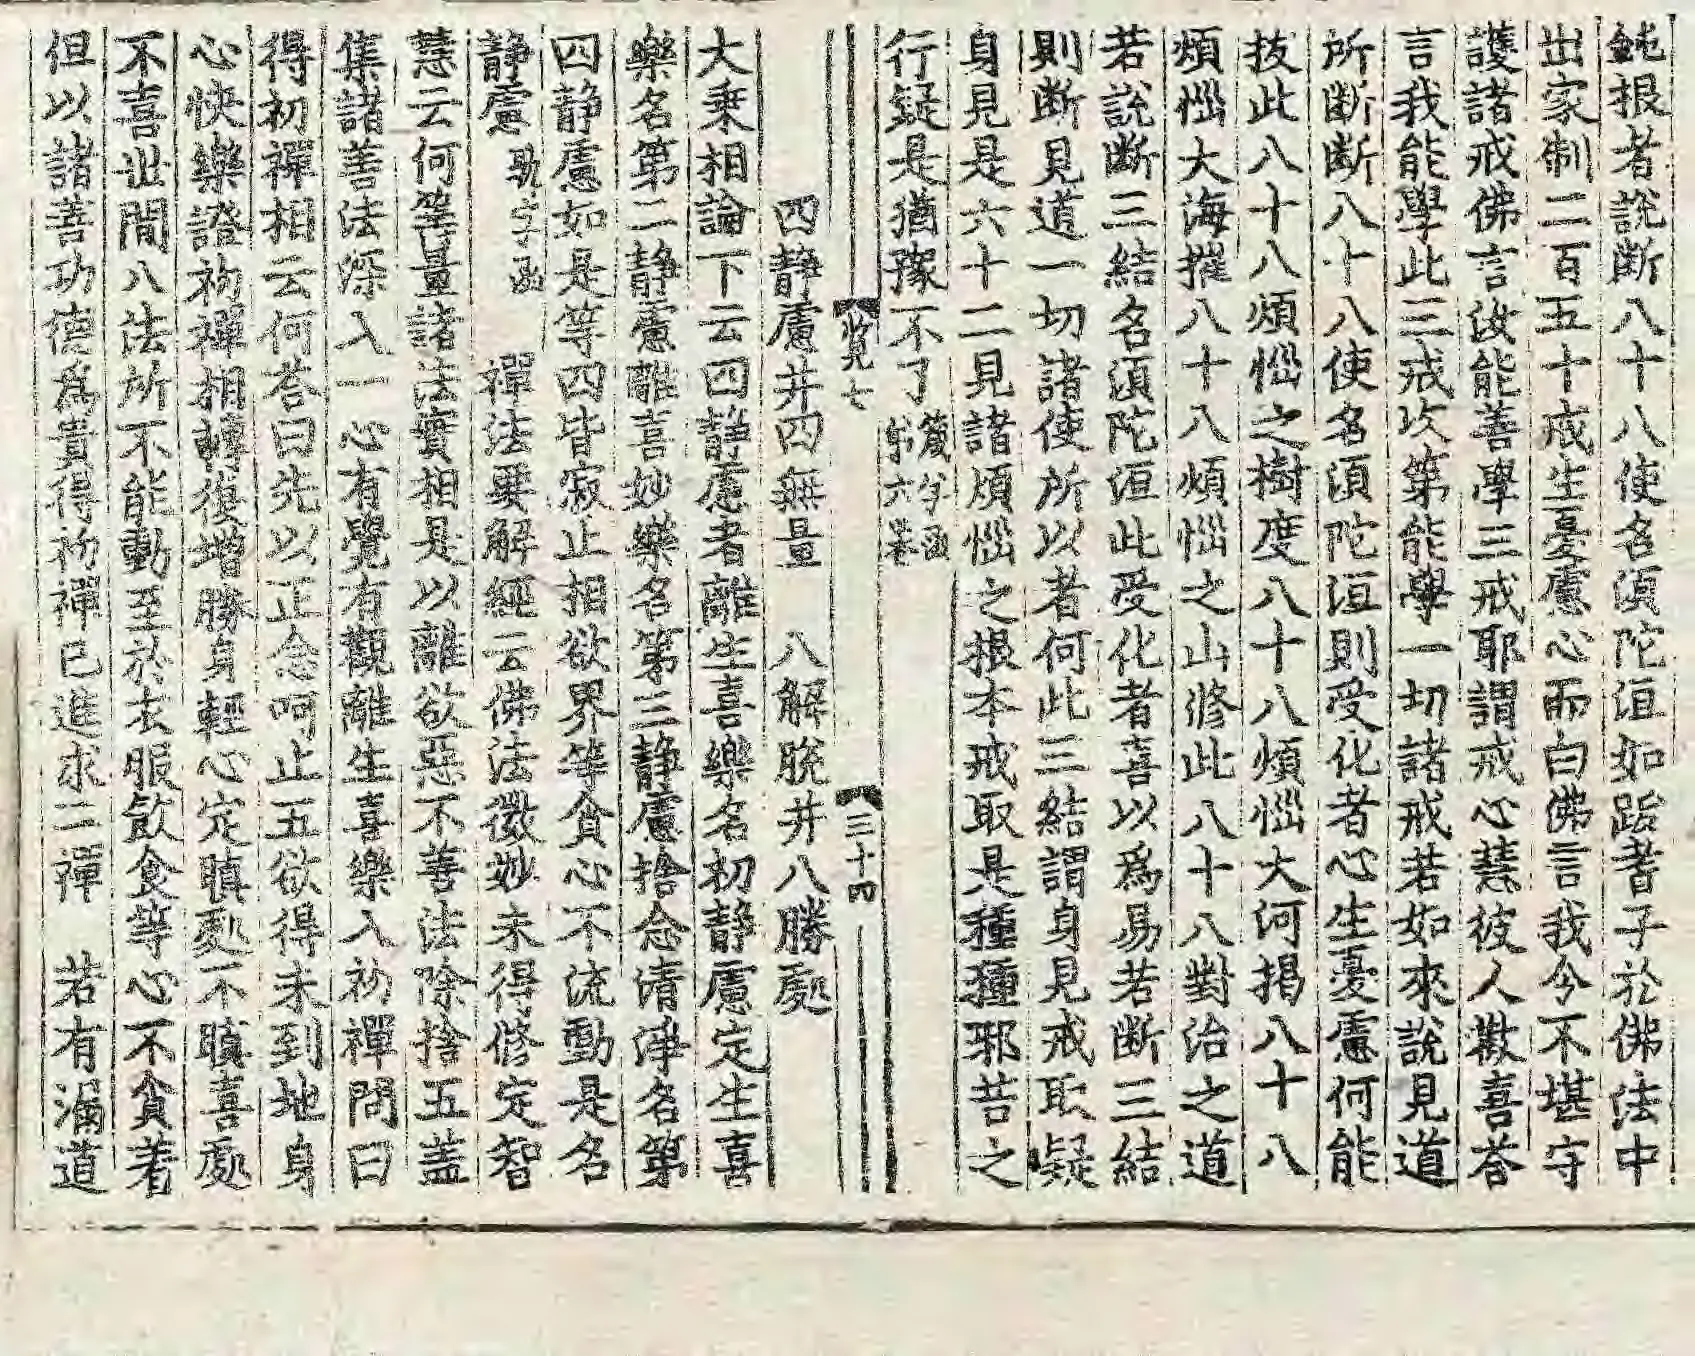 鈍根者說断八十八使名須陀洹如跋耆子於佛法中
出家制二百五十戒生憂慮心而白佛言我今不堪守
護諸戒佛言汝能善學三戒耶謂戒心慧彼人歡喜荅
言我能學此三戒次第能學一切諸戒若如來說見道
所断断八十八使名須陀洹則受化者心生憂慮何能
拔此八十八煩惱之樹度八十八煩惱大河揭八十八
煩惱大海摧八十八煩惱之山修此八十八對治之道
若說断三結名須陀洹此受化者喜以爲易若断三結
則断見道一切諸使所以者何此三結謂身見戒取疑
身見是六十二見諸煩惱之根本戒取是種種邪苦之
行疑是猶豫不了
字函
第六卷
覽七
三十四
四静慮并四無量 八解脫并八勝處
大乗相論下云四静慮者離生喜樂名初静慮定生喜
樂名第二静慮離喜妙樂名第三静慮捨念清淨名第
四静慮如是等四皆寂止相欲界等貪心不流動是名
静慮 字函 禪法要解經云佛法微妙未得修定智
慧云何等量諸法實相是以離欲惡不善法除捨五盖
集諸善法深入一心有覺有觀離生喜樂入初禪問曰
得初禪相云何荅曰先以正念呵止五欲得未到地身
心快樂證初禪相轉復增勝身輕心定瞋處不瞋喜處
不喜世間八法所不能動至於衣服飲食等心不貪着
但以諸善功德爲貴得初禪已進求二禪 若有漏道